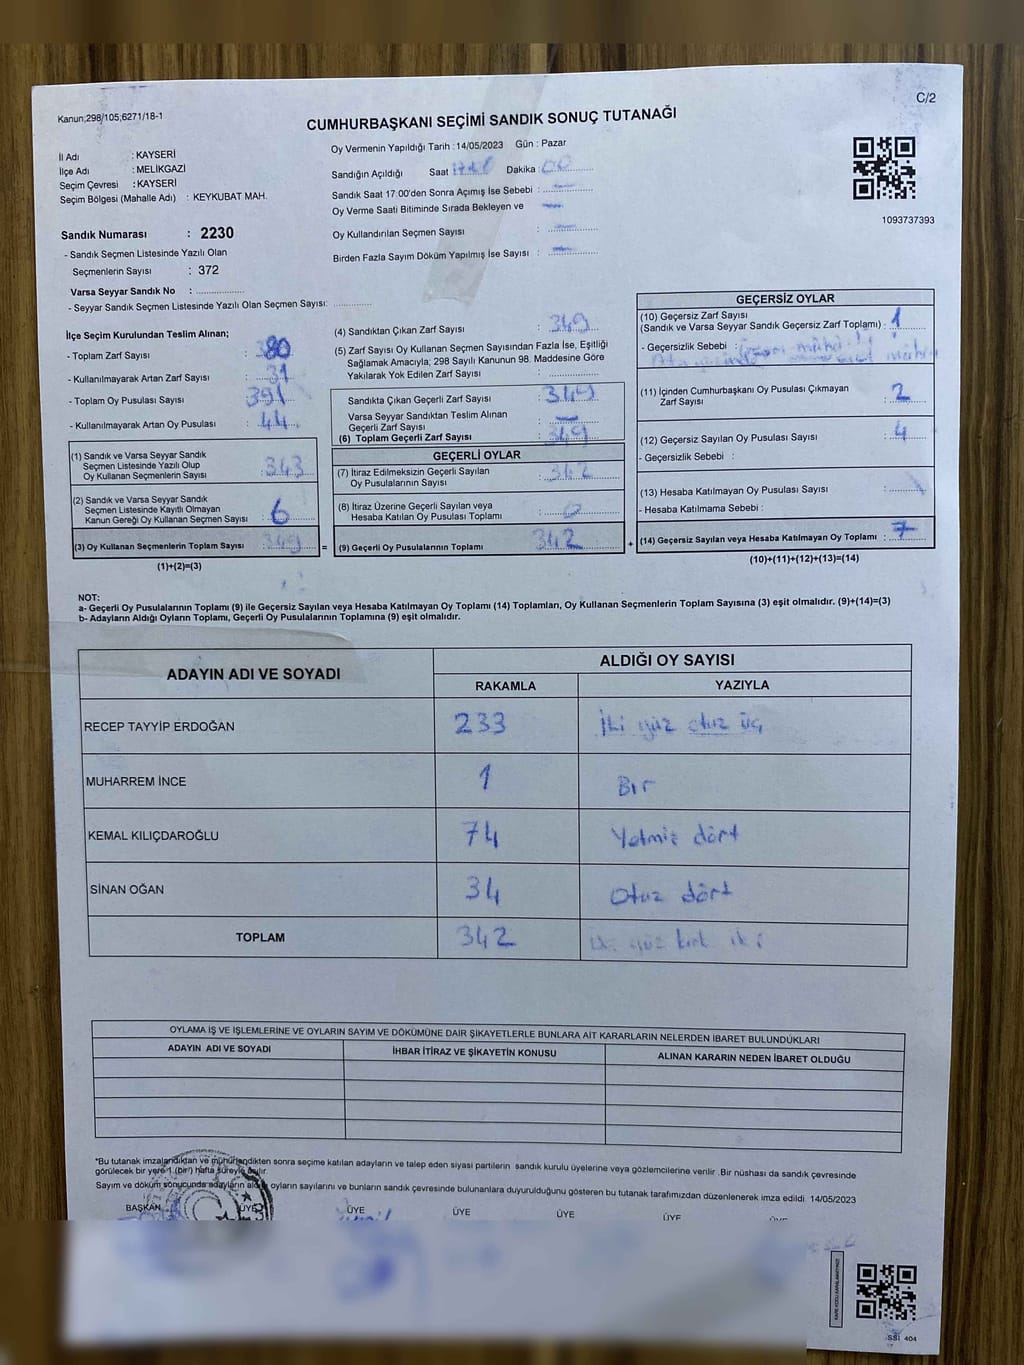 C/2
Kanun;298/105;6271/18-1
CUMHURBAŞKANI SEÇİMİ SANDIK SONUÇ TUTANAĞI
İl Adı : KAYSERİ
İlçe Adı : MELİKGAZİ
Seçim Çevresi : KAYSERİ
Seçim Bölgesi (Mahalle Adı) : KEYKUBAT MAH.
Sandık Numarası : 2230
- Sandık Seçmen Listesinde Yazılı Olan
Seçmenlerin Sayısı : 372
Varsa Seyyar Sandık No :
- Seyyar Sandık Seçmen Listesinde Yazılı Olan Seçmen Sayısı:
Oy Vermenin Yapıldığı Tarih :14/05/2023 Gün : Pazar
Sandığın Açıldığı Saat Dakika : 00
Sandık Saat 17:00'den Sonra Açımış İse Sebebi : —
Oy Verme Saati Bitiminde Sırada Bekleyen ve —
Oy Kullandırılan Seçmen Sayısı : —
Birden Fazla Sayım Döküm Yapılmış İse Sayısı : —
1093737393
İlçe Seçim Kurulundan Teslim Alınan;
- Toplam Zarf Sayısı : 380
- Kullanılmayarak Artan Zarf Sayısı : 31
- Toplam Oy Pusulası Sayısı : 391
- Kullanılmayarak Artan Oy Pusulası : 44
(1) Sandık ve Varsa Seyyar Sandık
Seçmen Listesinde Yazılı Olup
Oy Kullanan Seçmenlerin Sayısı : 343
(2) Sandık ve Varsa Seyyar Sandık
Seçmen Listesinde Kayıtlı Olmayan
Kanun Gereği Oy Kullanan Seçmen Sayısı : 6
(3) Oy Kullanan Seçmenlerin Toplam Sayısı : 349 =
(1)+(2)=(3)
(4) Sandıktan Çıkan Zarf Sayısı : 349
(5) Zarf Sayısı Oy Kullanan Seçmen Sayısından Fazla İse, Eşitliği
Sağlamak Amacıyla; 298 Sayılı Kanunun 98. Maddesine Göre
Yakılarak Yok Edilen Zarf Sayısı :
Sandıkta Çıkan Geçerli Zarf Sayısı : 349
Varsa Seyyar Sandıktan Teslim Alınan
Geçerli Zarf Sayısı : —
(6) Toplam Geçerli Zarf Sayısı : 349
GEÇERLİ OYLAR
(7) İtiraz Edilmeksizin Geçerli Sayılan
Oy Pusulalarının Sayısı : 342
(8) İtiraz Üzerine Geçerli Sayılan veya
Hesaba Katılan Oy Pusulası Toplamı : 0
(9) Geçerli Oy Pusulalarının Toplamı : 342 +
GEÇERSİZ OYLAR
(10) Geçersiz Zarf Sayısı
(Sandık ve Varsa Seyyar Sandık Geçersiz Zarf Toplamı) : 1
- Geçersizlik Sebebi :
(11) İçinden Cumhurbaşkanı Oy Pusulası Çıkmayan
Zarf Sayısı : 2
(12) Geçersiz Sayılan Oy Pusulası Sayısı : 4
- Geçersizlik Sebebi :
(13) Hesaba Katılmayan Oy Pusulası Sayısı :
- Hesaba Katılmama Sebebi :
(14) Geçersiz Sayılan veya Hesaba Katılmayan Oy Toplamı : 7
(10)+(11)+(12)+(13)=(14)
NOT:
a- Geçerli Oy Pusulalarının Toplamı (9) ile Geçersiz Sayılan veya Hesaba Katılmayan Oy Toplamı (14) Toplamları, Oy Kullanan Seçmenlerin Toplam Sayısına (3) eşit olmalıdır. (9)+(14)=(3)
b- Adayların Aldığı Oyların Toplamı, Geçerli Oy Pusulalarının Toplamına (9) eşit olmalıdır.
ADAYIN ADI VE SOYADI ALDIĞI OY SAYISI
RAKAMLA YAZIYLA
RECEP TAYYİP ERDOĞAN 233 İki yüz otuz üç
MUHARREM İNCE 1 Bir
KEMAL KILIÇDAROĞLU 74 Yetmiş dört
SİNAN OĞAN 34 Otuz dört
TOPLAM 342 üç yüz kırk iki
OYLAMA İŞ VE İŞLEMLERİNE VE OYLARIN SAYIM VE DÖKÜMÜNE DAİR ŞİKAYETLERLE BUNLARA AİT KARARLARIN NELERDEN İBARET BULUNDUKLARI
ADAYIN ADI VE SOYADI İHBAR İTİRAZ VE ŞİKAYETİN KONUSU ALINAN KARARIN NEDEN İBARET OLDUĞU
*Bu tutanak imzalandıktan ve mühürlendikten sonra seçime katılan adayların ve talep eden siyasi partilerin sandık kurulu üyelerine veya gözlemcilerine verilir .Bir nüshası da sandık çevresinde
görülecek bir yere 1 (bir) hafta süreyle asılır.
Sayım ve döküm sonucunda adayların aldığı oyların sayılarını ve bunların sandık çevresinde bulunanlara duyurulduğunu gösteren bu tutanak tarafımızdan düzenlenerek imza edildi. 14/05/2023
BAŞKAN ÜYE ÜYE ÜYE ÜYE ÜYE ÜYE
SSİ 404